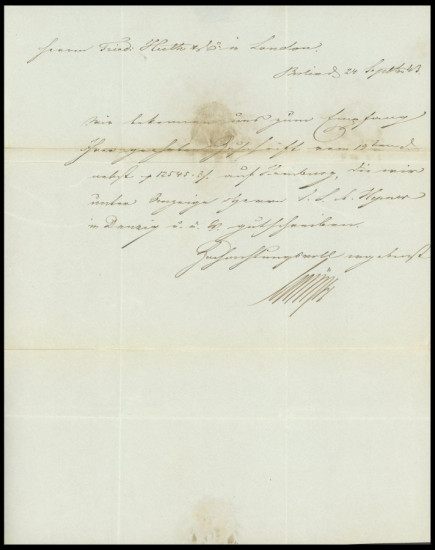 Herrn Fried. Huth & Co. in London.
Berlin d. 22 Septbr 43
Wir bekennen uns zum Empfang
Ihrer geehrten Zuschrift vom
nebst 12545. auf Hamburg, die wir
unter Anzeige Herrn
in Danzig gutschreiben.
Hochachtungsvoll ergebenst